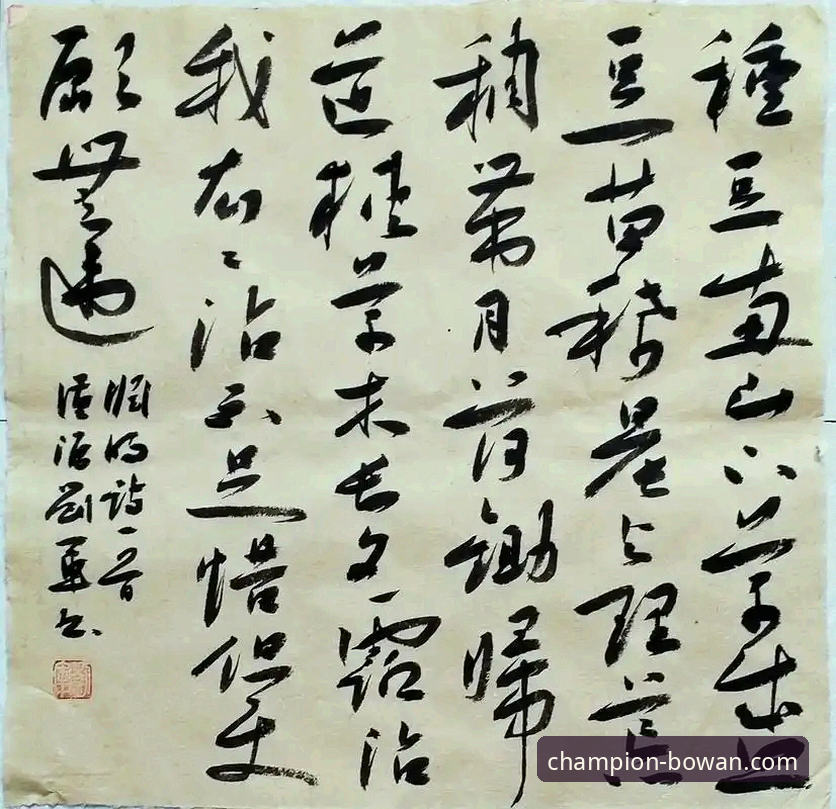 種豆南山下草盛
豆苗稀晨興理荒
穢帶月荷鋤歸
道狹草木長夕露沾
我衣々沾不足惜但使
願無違
明詩一首
劉軍书
champion-bowan.com